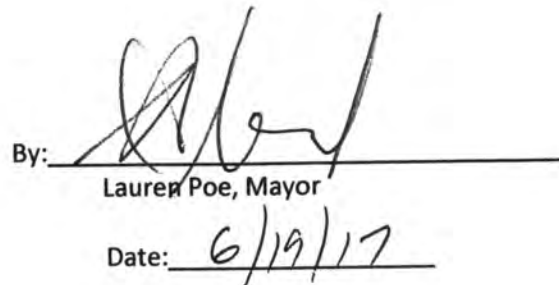 By:
Lauren Poe, Mayor
Date: 6/19/17